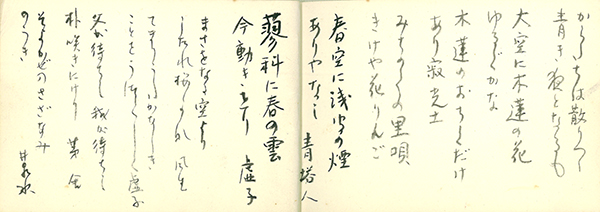 からたちは散りつつ
青き夜となるも
大空に木蓮の花
ゆらぐかな
木蓮のおちくだけ
あり寂光土
みちのくの里唄
きけや花りんご
春空に浅間の煙
ありやなし 青塔人
蓼科に春の雲
今動きをり 虚子
まさをなる空より
しだれ桜かな 風生
てまりうたかなしき
ことをうつくしく 虚子
父が待ちし我が待ちし
朴咲きにけり 茅舎
そよかぜのさざなみ
井泉水